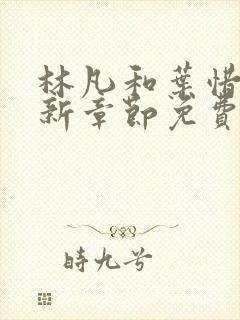 林凡和葉惜
新章節免費
時九兮